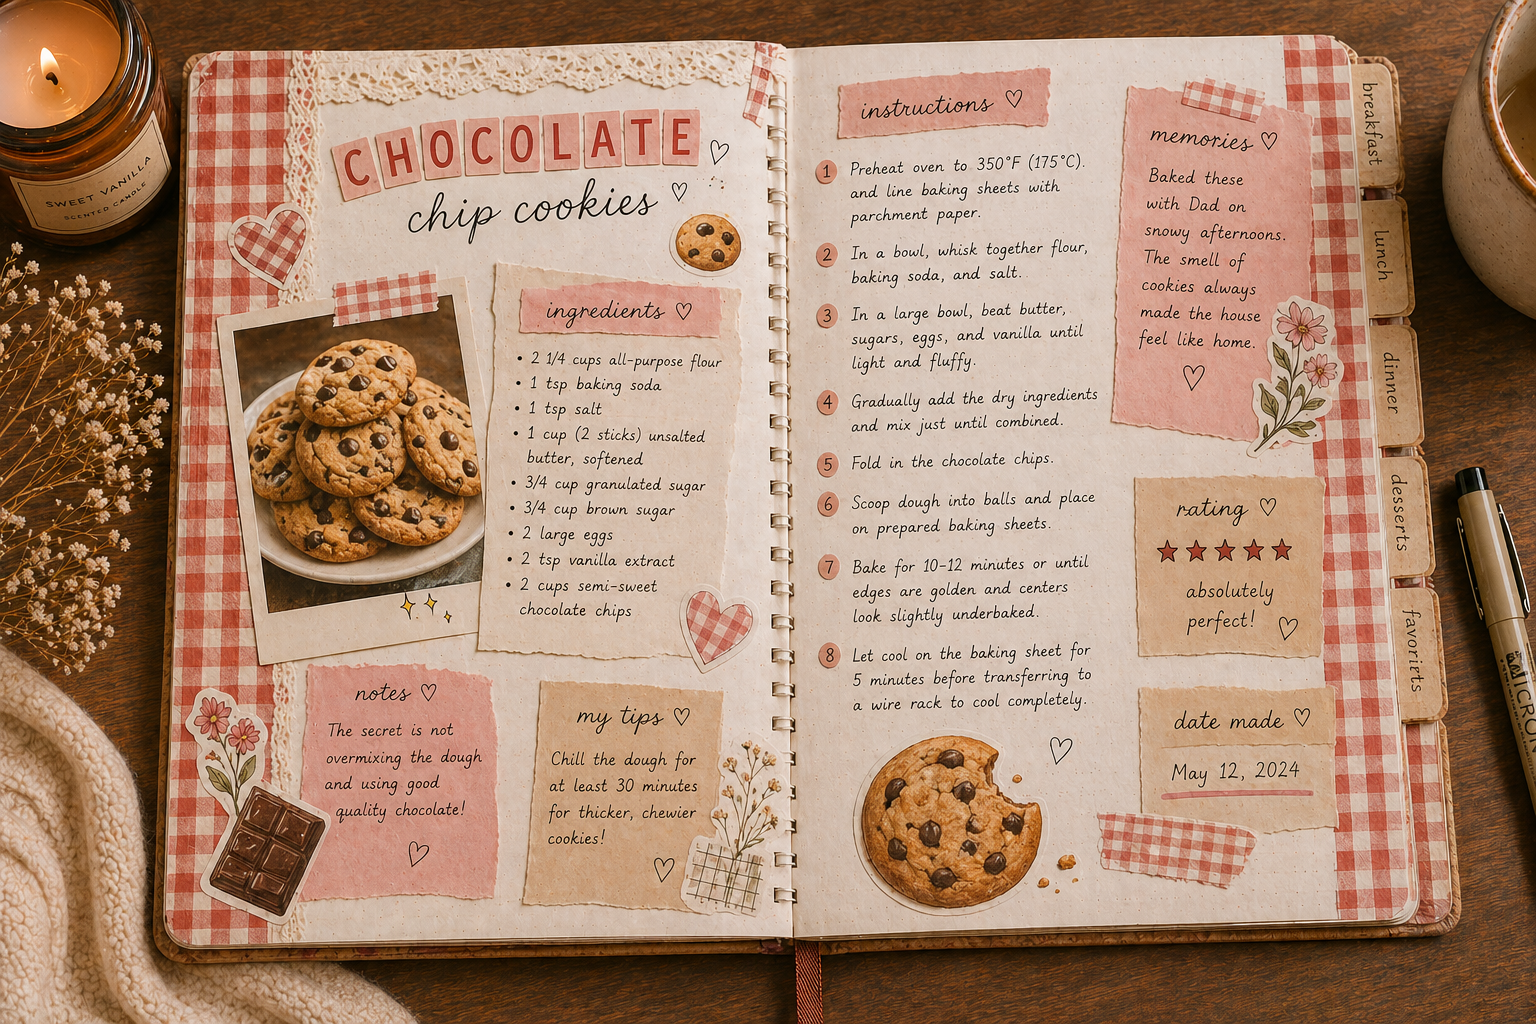 SWEET VANILLA
SCENTED CANDLE
CHOCOLATE
chip cookies
ingredients
• 2 1/4 cups all-purpose flour
• 1 tsp baking soda
• 1 tsp salt
• 1 cup (2 sticks) unsalted
butter, softened
• 3/4 cup granulated sugar
• 3/4 cup brown sugar
• 2 large eggs
• 2 tsp vanilla extract
• 2 cups semi-sweet
chocolate chips
notes
The secret is not
overmixing the dough
and using good
quality chocolate!
my tips
Chill the dough for
at least 30 minutes
for thicker, chewier
cookies!
instructions
1 Preheat oven to 350°F (175°C).
and line baking sheets with
parchment paper.
2 In a bowl, whisk together flour,
baking soda, and salt.
3 In a large bowl, beat butter,
sugars, eggs, and vanilla until
light and fluffy.
4 Gradually add the dry ingredients
and mix just until combined.
5 Fold in the chocolate chips.
6 Scoop dough into balls and place
on prepared baking sheets.
7 Bake for 10-12 minutes or until
edges are golden and centers
look slightly underbaked.
8 Let cool on the baking sheet for
5 minutes before transferring to
a wire rack to cool completely.
memories
Baked these
with Dad on
snowy afternoons.
The smell of
cookies always
made the house
feel like home.
rating
absolutely
perfect!
date made
May 12, 2024
breakfast
lunch
dinner
desserts
favorirts